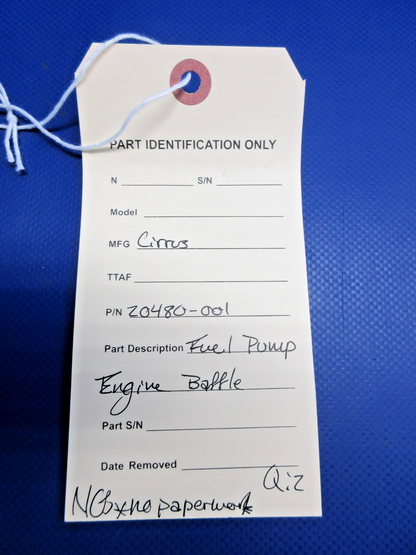 PART IDENTIFICATION ONLY
N S/N
Model
MFG Cirrus
TTAF
P/N 20480-001
Part Description Fuel Pump
Engine Baffle
Part S/N
Date Removed
Q:2
no paperwork